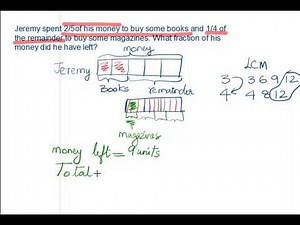 Jeremy spent 2/5of his money to buy some books and 1/4 of
the remainder to buy some magazines. What fraction of his
money did he have left?
money
LCM
Jeremy
3 3 6 9 12
4 4 8 12
Books remainder
magazines
money left = 9 units
Total